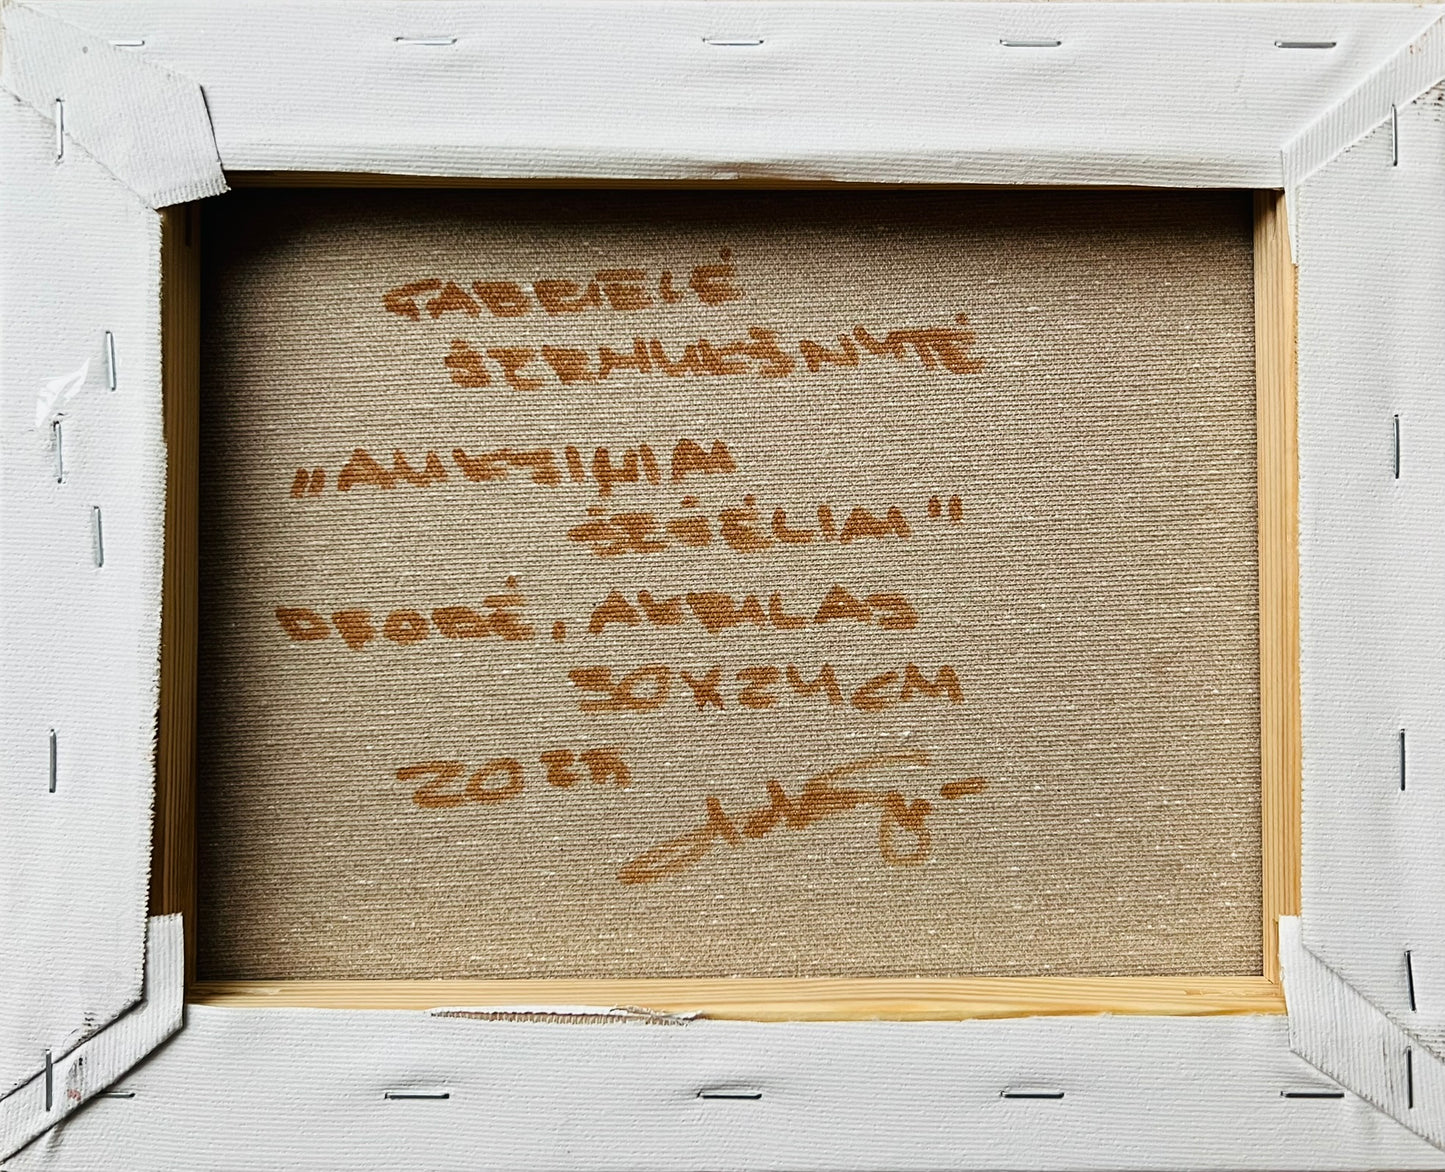 GABRIELĖ
ŠERMUKŠNYTĖ
„AUKSINIAI
ŠEŠĖLIAI"
DROBĖ, AKRILAS
30X24CM